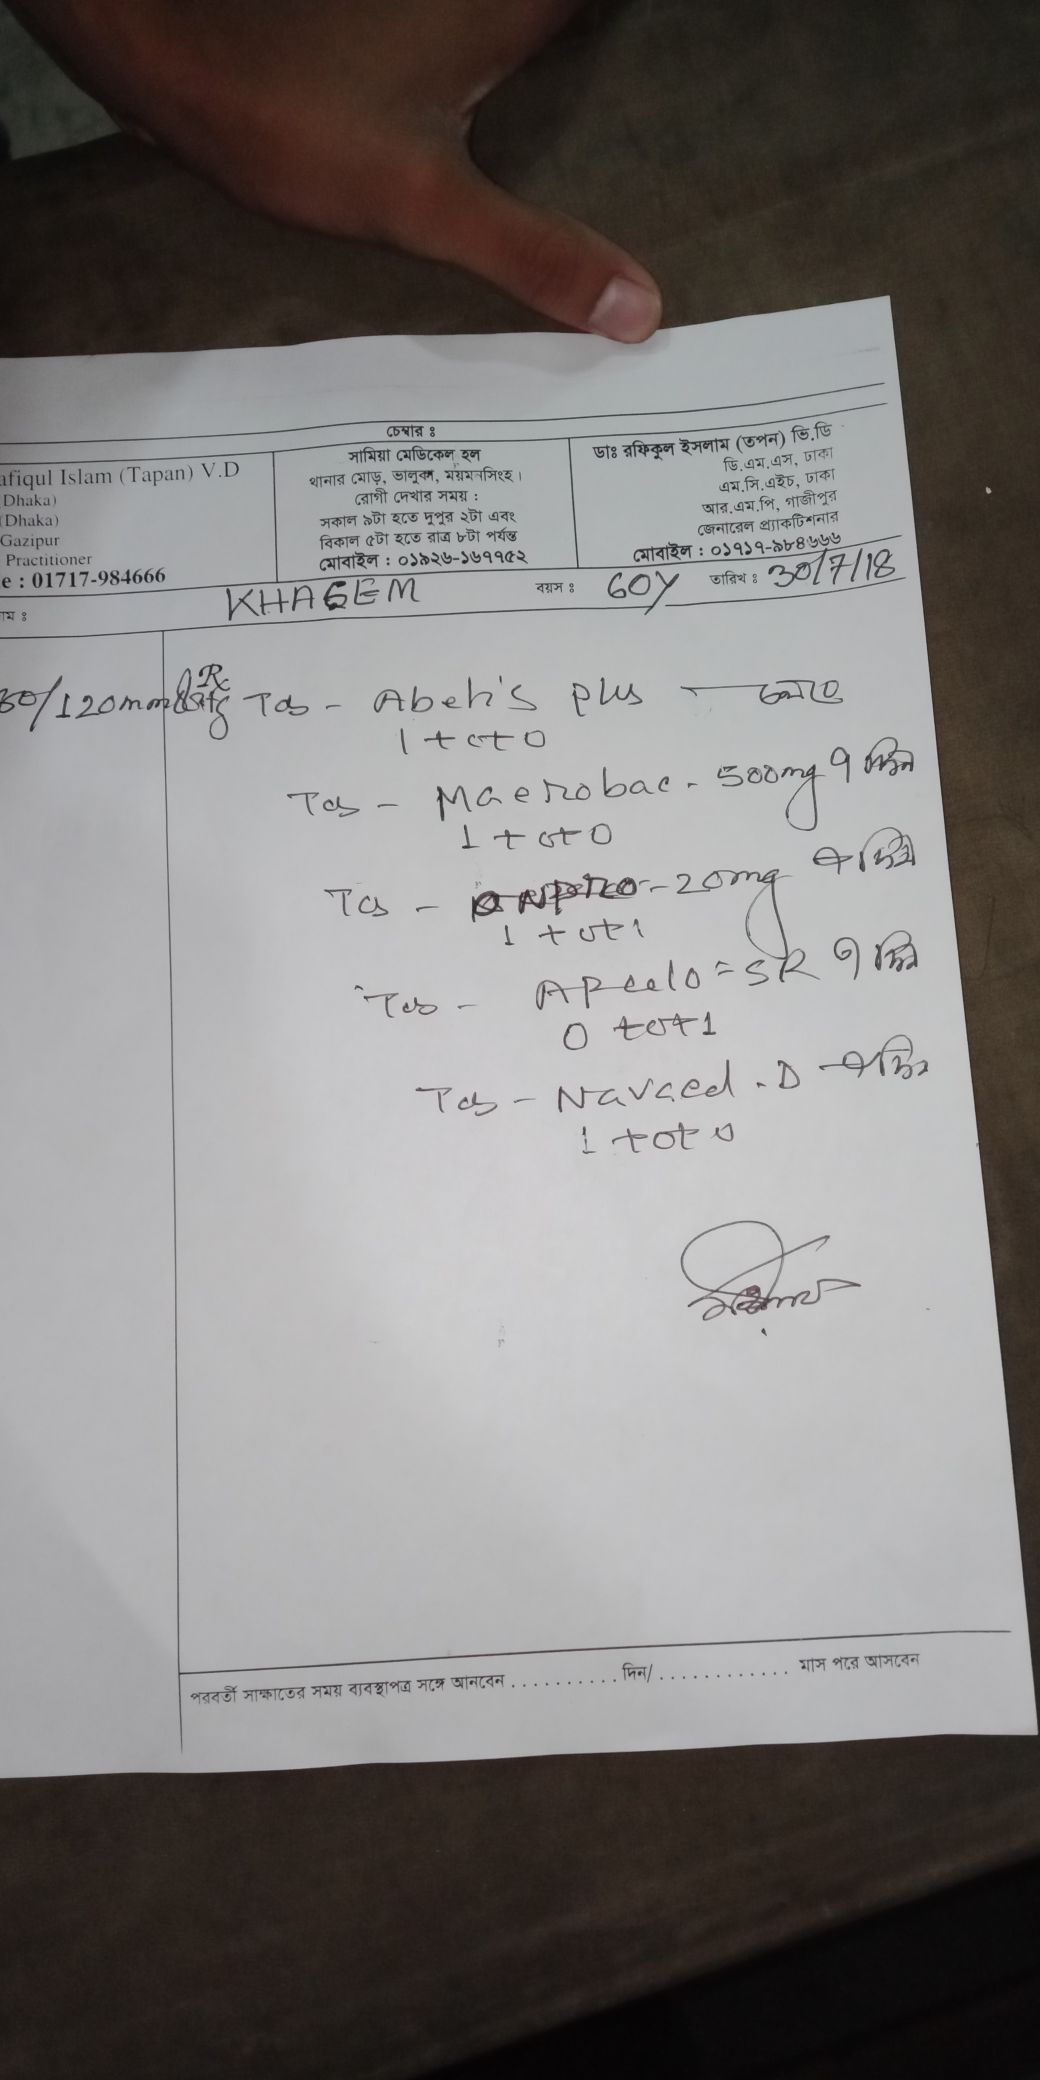 চেম্বার ঃ
afiqul Islam (Tapan) V.D
(Dhaka)
(Dhaka)
Gazipur
Practitioner
e : 01717-984666
সামিয়া মেডিকেল হল
থানার মোড়, ভালুকা, ময়মনসিংহ।
রোগী দেখার সময় :
সকাল ৯টা হতে দুপুর ২টা এবং
বিকাল ৫টা হতে রাত্র ৮টা পর্যন্ত
মোবাইল : ০১৯২৬-১৬৭৭৫২
ডাঃ রফিকুল ইসলাম (তপন) ভি.ডি
ডি.এম.এস, ঢাকা
এম.সি.এইচ, ঢাকা
আর.এম.পি, গাজীপুর
জেনারেল প্র্যাকটিশনার
মোবাইল : ০১৭১৭-৯৮৪৬৬৬
াম ঃ KHASEM বয়স ঃ 60Y তারিখ ঃ 30/7/18
60/120mm
Rx
Tab - Abetis plus চলবে
1+0+0
Tab - Macrobac - 500mg ৭ দিন
1+0+0
Tab - 20mg দিন
1+0+1
Tab - SR ৭ দিন
0+0+1
Tab - D
1+0+0
পরবর্তী সাক্ষাতের সময় ব্যবস্থাপত্র সঙ্গে আনবেন . . . . . . . . . . দিন/ . . . . . . . . . . . . মাস পরে আসবেন